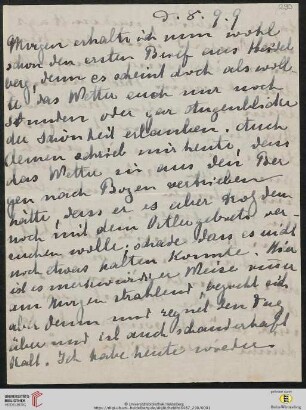 d. 8. 9. 9
Morgen erhalte ich nun wohl
schon den ersten Brief aus Heidel
berg, denn es scheint doch als woll
te das Wetter auch nur noch
Stunden oder gar Augenblicke
der Schönheit erlauben. Auch
Clemen schrieb mir heute, dass
das Wetter ihn aus den Ber
gen nach Bozen vertrieben
hätte, dass er es aber trotzdem
noch mit dem Ortlergebiete ver
suchen wolle, schade dass es nicht
noch etwas halten konnte. Hier
ist es merkwürdiger Weise immer
am Morgen strahlend
aber dann und regnet den Tag
über und ist auch schauderhaft
kalt. Ich habe heute wieder
UNIVERSITÄTS-
BIBLIOTHEK
HEIDELBERG
© Universitätsbibliothek Heidelberg